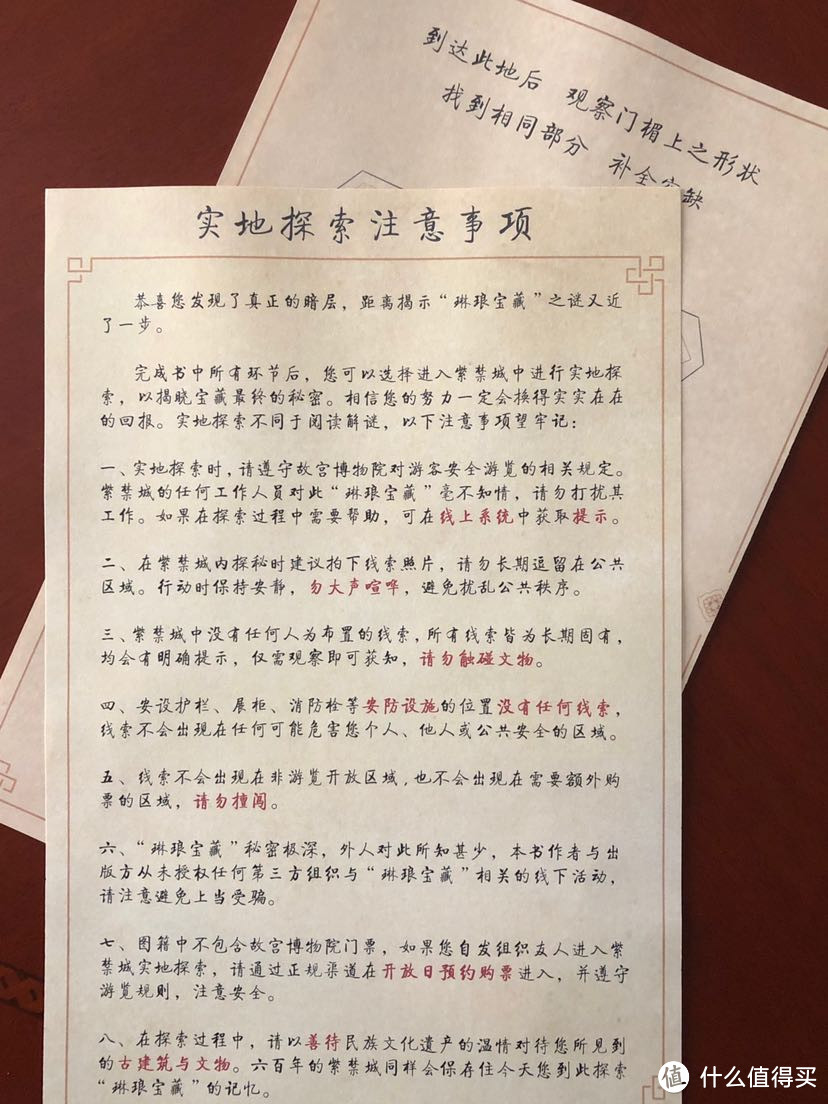 到达此地后 观察门楣上之形状
找到相同部分 补全空缺
实地探索注意事项
恭喜您发现了真正的暗层，距离揭示“琳琅宝藏”之谜又近
了一步。
完成书中所有环节后，您可以选择进入紫禁城中进行实地探
索，以揭晓宝藏最终的秘密。相信您的努力一定会换得实实在在
的回报。实地探索不同于阅读解谜，以下注意事项望牢记：
一、实地探索时，请遵守故宫博物院对游客安全游览的相关规定。
紫禁城的任何工作人员对此“琳琅宝藏”毫不知情，请勿打扰其
工作。如果在探索过程中需要帮助，可在线上系统中获取提示。
二、在紫禁城内探秘时建议拍下线索照片，请勿长期逗留在公共
区域。行动时保持安静，勿大声喧哗，避免扰乱公共秩序。
三、紫禁城中没有任何人为布置的线索，所有线索皆为长期固有，
均会有明确提示，仅需观察即可获知，请勿触碰文物。
四、安设护栏、展柜、消防栓等安防设施的位置没有任何线索，
线索不会出现在任何可能危害您个人、他人或公共安全的区域。
五、线索不会出现在非游览开放区域，也不会出现在需要额外购
票的区域，请勿擅闯。
六、“琳琅宝藏”秘密极深，外人对此所知甚少，本书作者与出
版方从未授权任何第三方组织与“琳琅宝藏”相关的线下活动，
请注意避免上当受骗。
七、图籍中不包含故宫博物院门票，如果您自发组织友人进入紫
禁城实地探索，请通过正规渠道在开放日预约购票进入，并遵守
游览规则，注意安全。
八、在探索过程中，请以善待民族文化遗产的温情对待您所见到
的古建筑与文物。六百年的紫禁城同样会保存住今天您到此探索
“琳琅宝藏”的记忆。
值 什么值得买